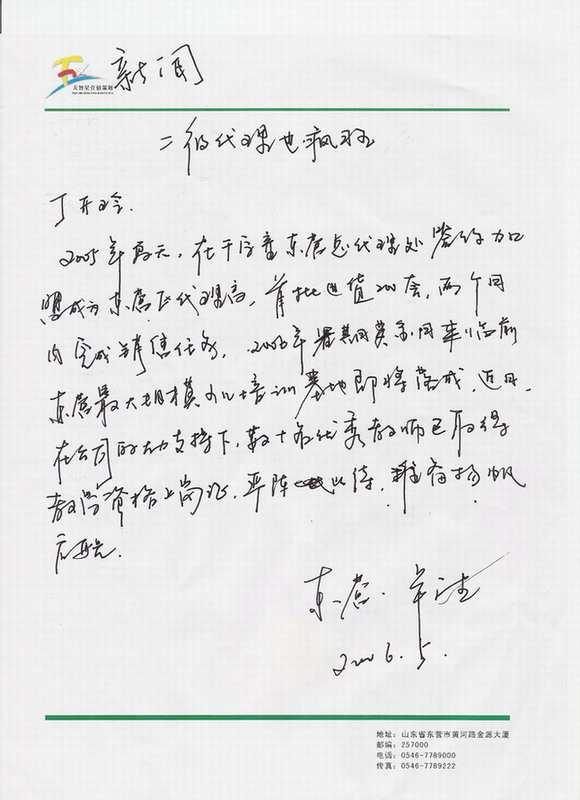 天智星营销策划
新闻
二级代理也疯狂
丁开玲
2005年夏天，在千字童东营总代理处签约加
盟成为东营区代理商，首批进货200套，两个月
内完成销售任务，2006年暑期英系周年临前
东营最大规模少儿培训基地即将落成，近日，
在公司的大力支持下，数十名优秀教师已取得
教学资格上岗证，严阵以待，准备扬帆
启航。
东营·牟洁
2006.5.
地址：山东省东营市黄河路金源大厦
邮编：257000
电话：0546-7789000
传真：0546-7789222